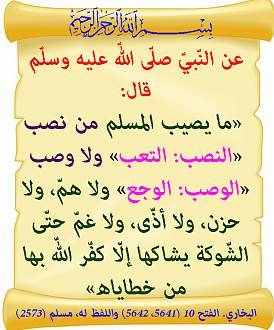 بسم الله الرحمن الرحيم
عن النّبيّ صلّى اللّه عليه وسلّم
قال:
«ما يصيب المسلم من نصب
«النصب: التعب» ولا وصب
«الوصب: الوجع» ولا همّ، ولا
حزن، ولا أذًى، ولا غمّ حتّى
الشّوكة يشاكها إلّا كفّر اللّه بها
من خطاياه»
البخاري. الفتح 10 (5641، 5642) واللفظ له، مسلم (2573)